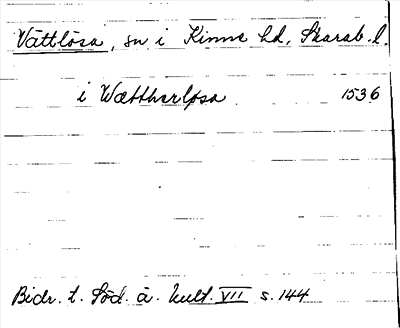 Vättlösa, sn i Kinne hd, Skarab. l.
i Wættherløsa 1536
Bidr. t. Söd. ä. kult. VII s. 144